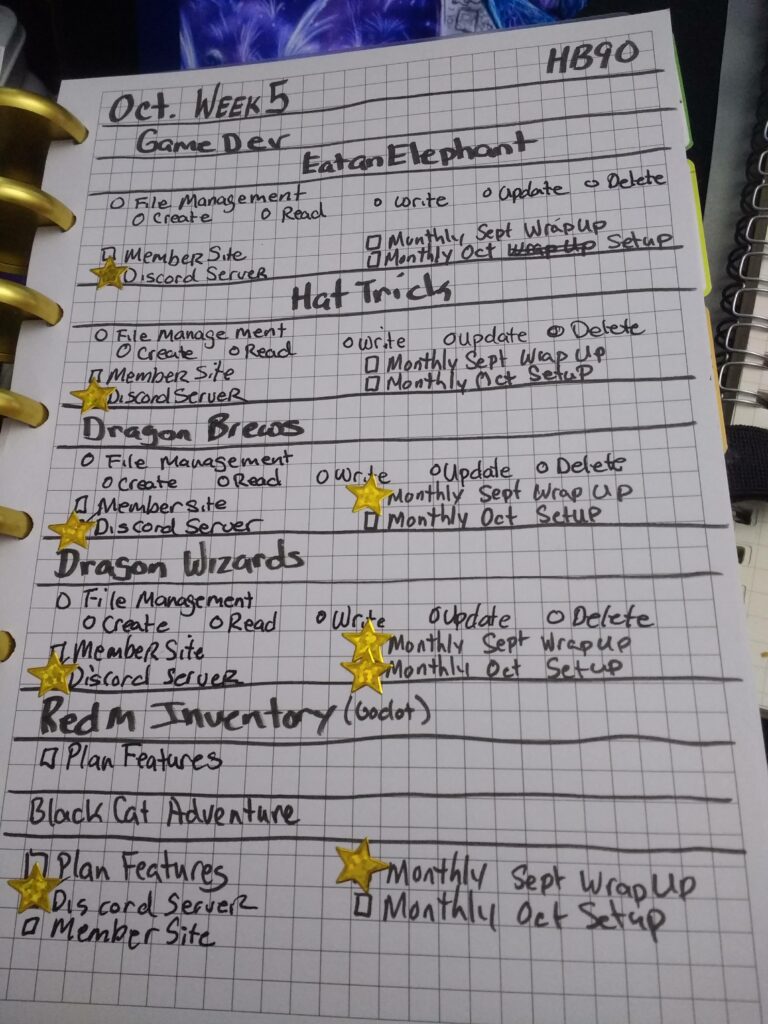 HB90
Oct. Week 5
Game Dev
Eat an Elephant
File Management
Create Read Write Update Delete
Member Site Monthly Sept Wrap Up
Discord Server Monthly Oct Wrap Up Setup
Hat Trick
File Management
Create Read Write Update Delete
Member Site Monthly Sept Wrap Up
Discord Server Monthly Oct Setup
Dragon Brews
File Management
Create Read Write Update Delete
Member Site Monthly Sept Wrap Up
Discord Server Monthly Oct Setup
Dragon Wizards
File Management
Create Read Write Update Delete
Member Site Monthly Sept Wrap Up
Discord Server Monthly Oct Setup
Redm Inventory (Godot)
Plan Features
Black Cat Adventure
Plan Features Monthly Sept Wrap Up
Discord Server Monthly Oct Setup
Member Site